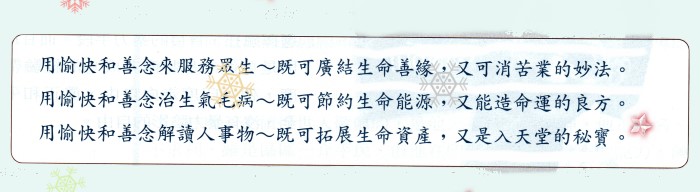 用愉快和善念來服務眾生～既可廣結生命善緣，又可消苦業的妙法。
用愉快和善念治生氣毛病～既可節約生命能源，又能造命運的良方。
用愉快和善念解讀人事物～既可拓展生命資產，又是入天堂的秘寶。